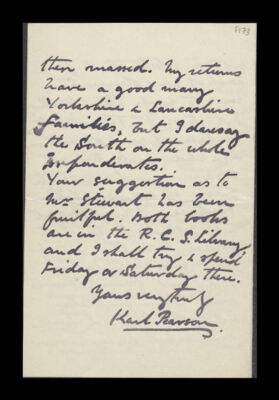 then massed. My returns
have a good many
Yorkshire & Lancashire
families, but I daresay
the South on the whole
preponderates.
Your suggestion as to
Mr Stewart has been
fruitful. Both books
are in the R. C. S. Library
and I shall try & spend
Friday or Saturday there.
Yours very truly
Karl Pearson.